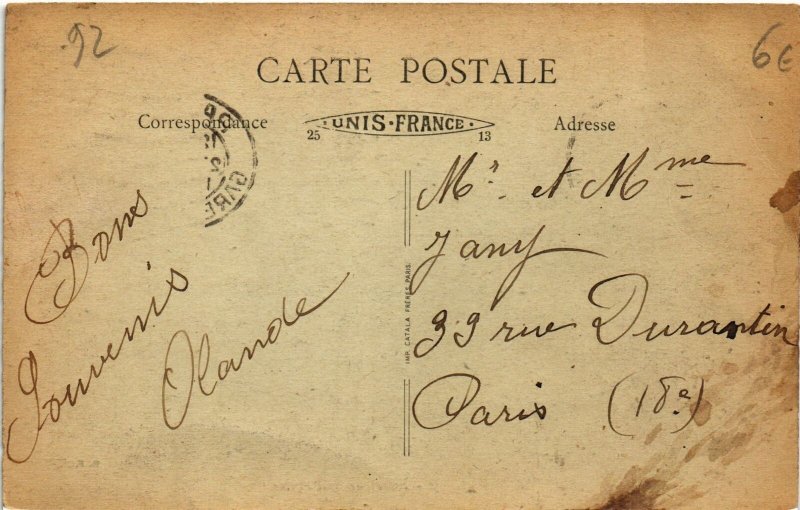 92
6€
CARTE POSTALE
Correspondance
UNIS·FRANCE
25
13
Adresse
GARE
Bons
Souvenirs
Olande
Mr. et Mme
Jany
33 rue Durantin
Paris (18e)
IMP. CATALA FRÈRES PARIS